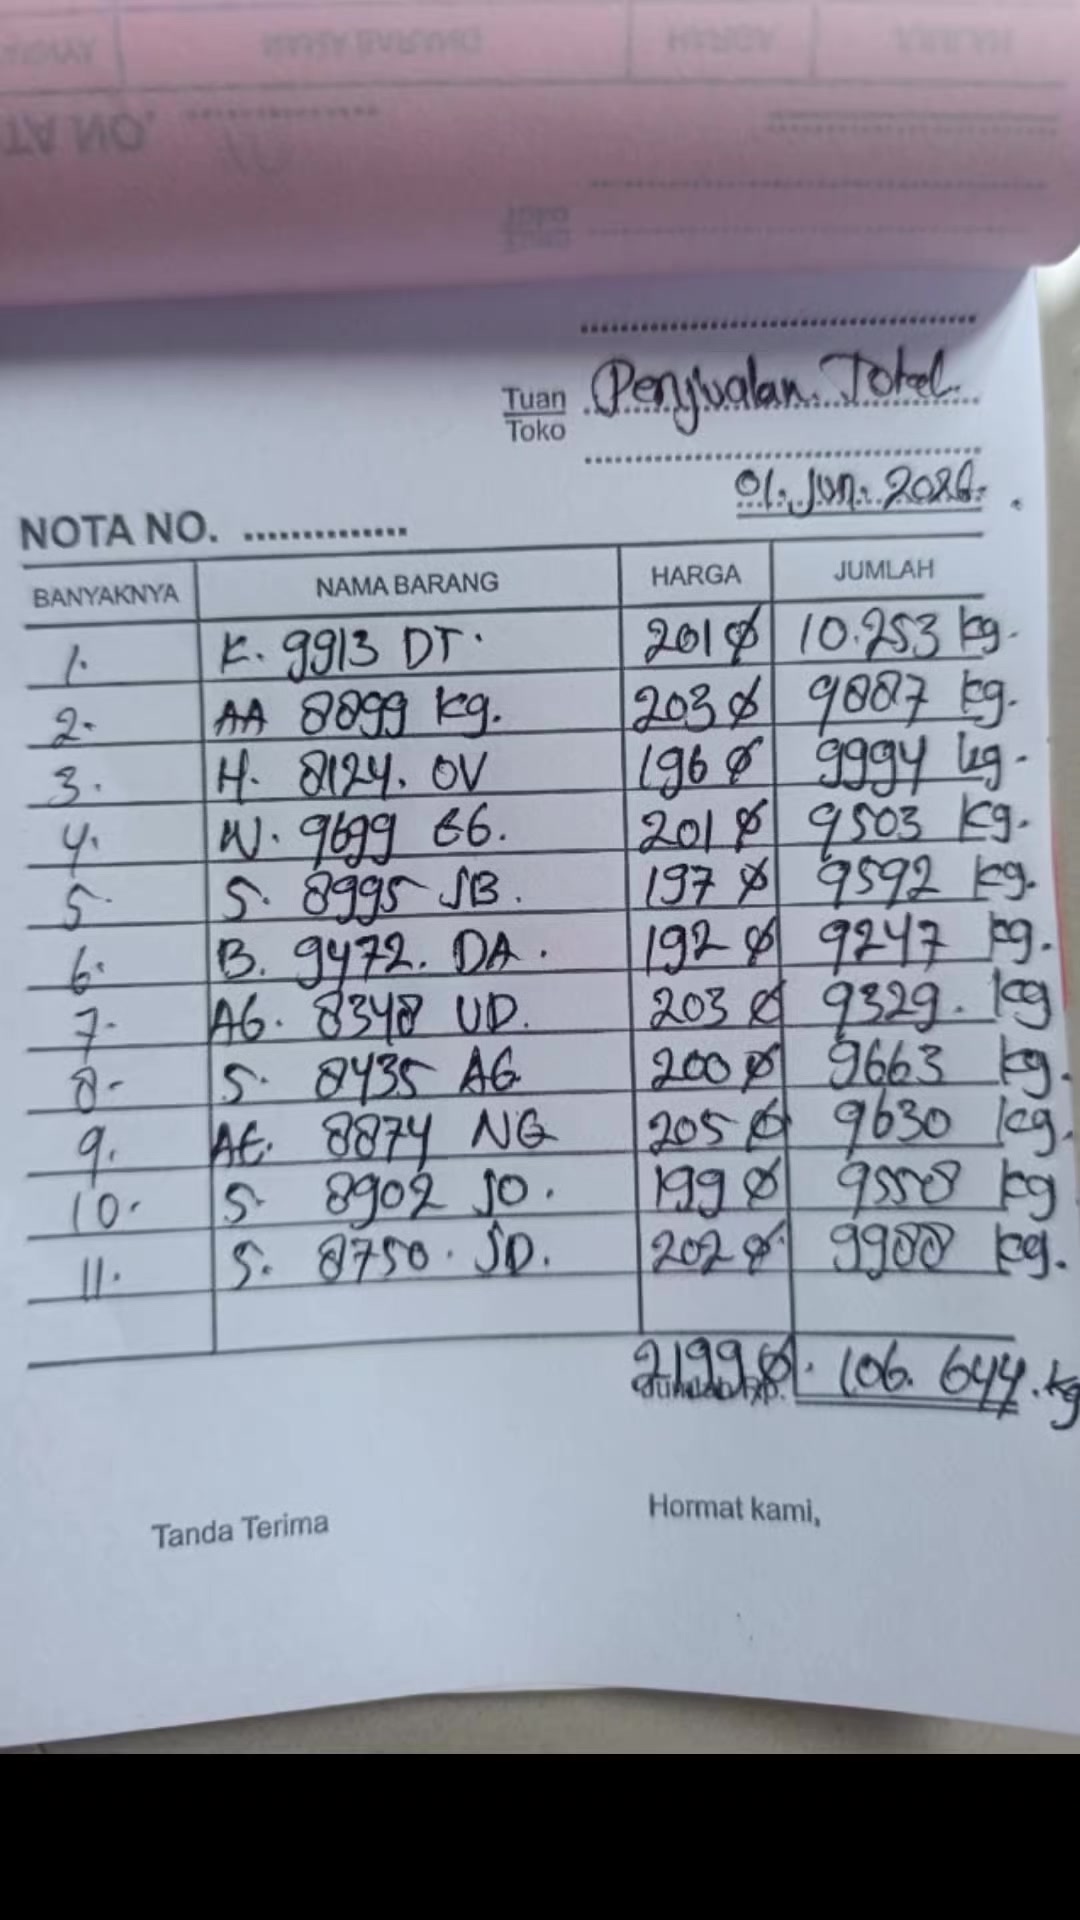 NOTA NO.
Tuan Penjualan. Total.
Toko
01. Jun. 2026.
NOTA NO. ..............
BANYAKNYA NAMA BARANG HARGA JUMLAH
1. K. 9913 DT. 201 Ø 10.253 kg.
2. AA 8899 kg. 203 Ø 9887 kg.
3. H. 8124. OV 196 Ø 9994 kg.
4. W. 9699 EG. 201 Ø 9503 kg.
5. S. 8995 JB. 197 Ø 9592 kg.
6. B. 9472. DA. 192 Ø 9247 kg.
7. AG. 8348 UD. 203 Ø 9329. kg
8. S. 8435 AG 200 Ø 9663 kg.
9. AE. 8874 NG 205 Ø 9630 kg.
10. S. 8902 JO. 199 Ø 9558 kg
11. S. 8750. JD. 202 Ø 9988 kg.
2199 Ø. 106. 644. kg
Jumlah Rp.
Tanda Terima Hormat kami,